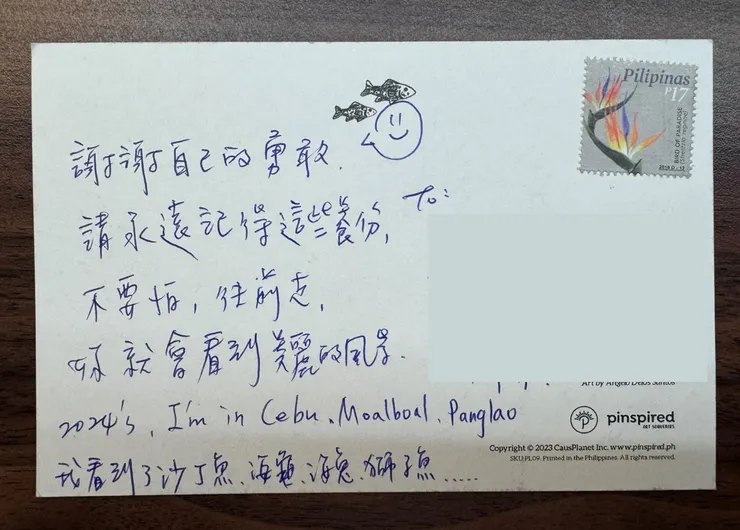 Pilipinas
₱17
BIRD OF PARADISE
(Strelitzia reginae)
謝謝自己的勇敢.
請永遠記得這些養份,
To:
不要怕, 往前走,
妳就會看到美麗的風景.
Art by Angelo Delos Santos
2024's, I'm in Cebu、Moalboal、Panglao
pinspired
ART SOUVENIRS
Copyright © 2023 CausPlanet Inc. www.pinspired.ph
SKU:PL09. Printed in the Philippines. All rights reserved.
我看到了沙丁魚、海龜、海兔、獅子魚.....